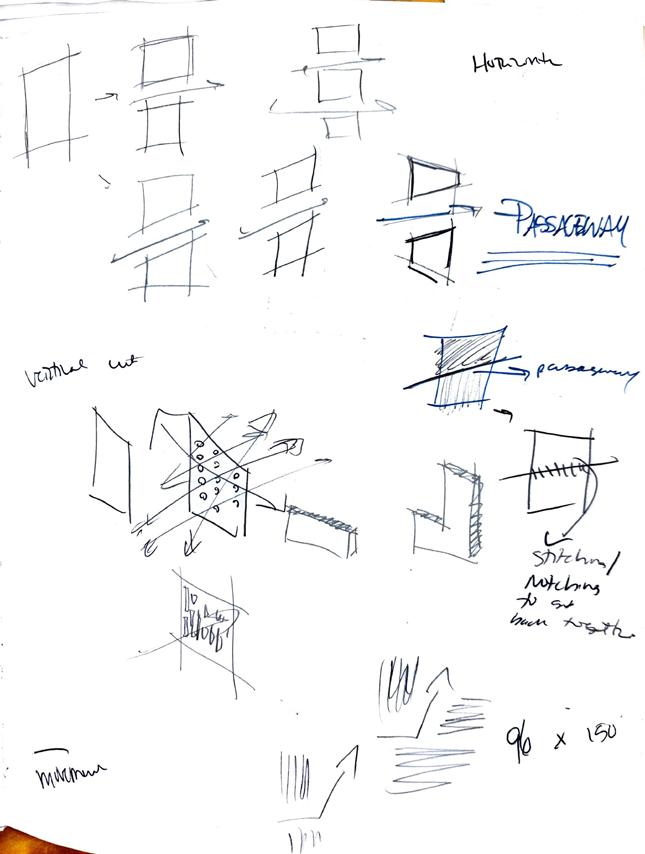 Horizontal
PASSAGEWAY
vertical cut
passageway
stitching/
Notching
to get
back together
96 x 150
Movement